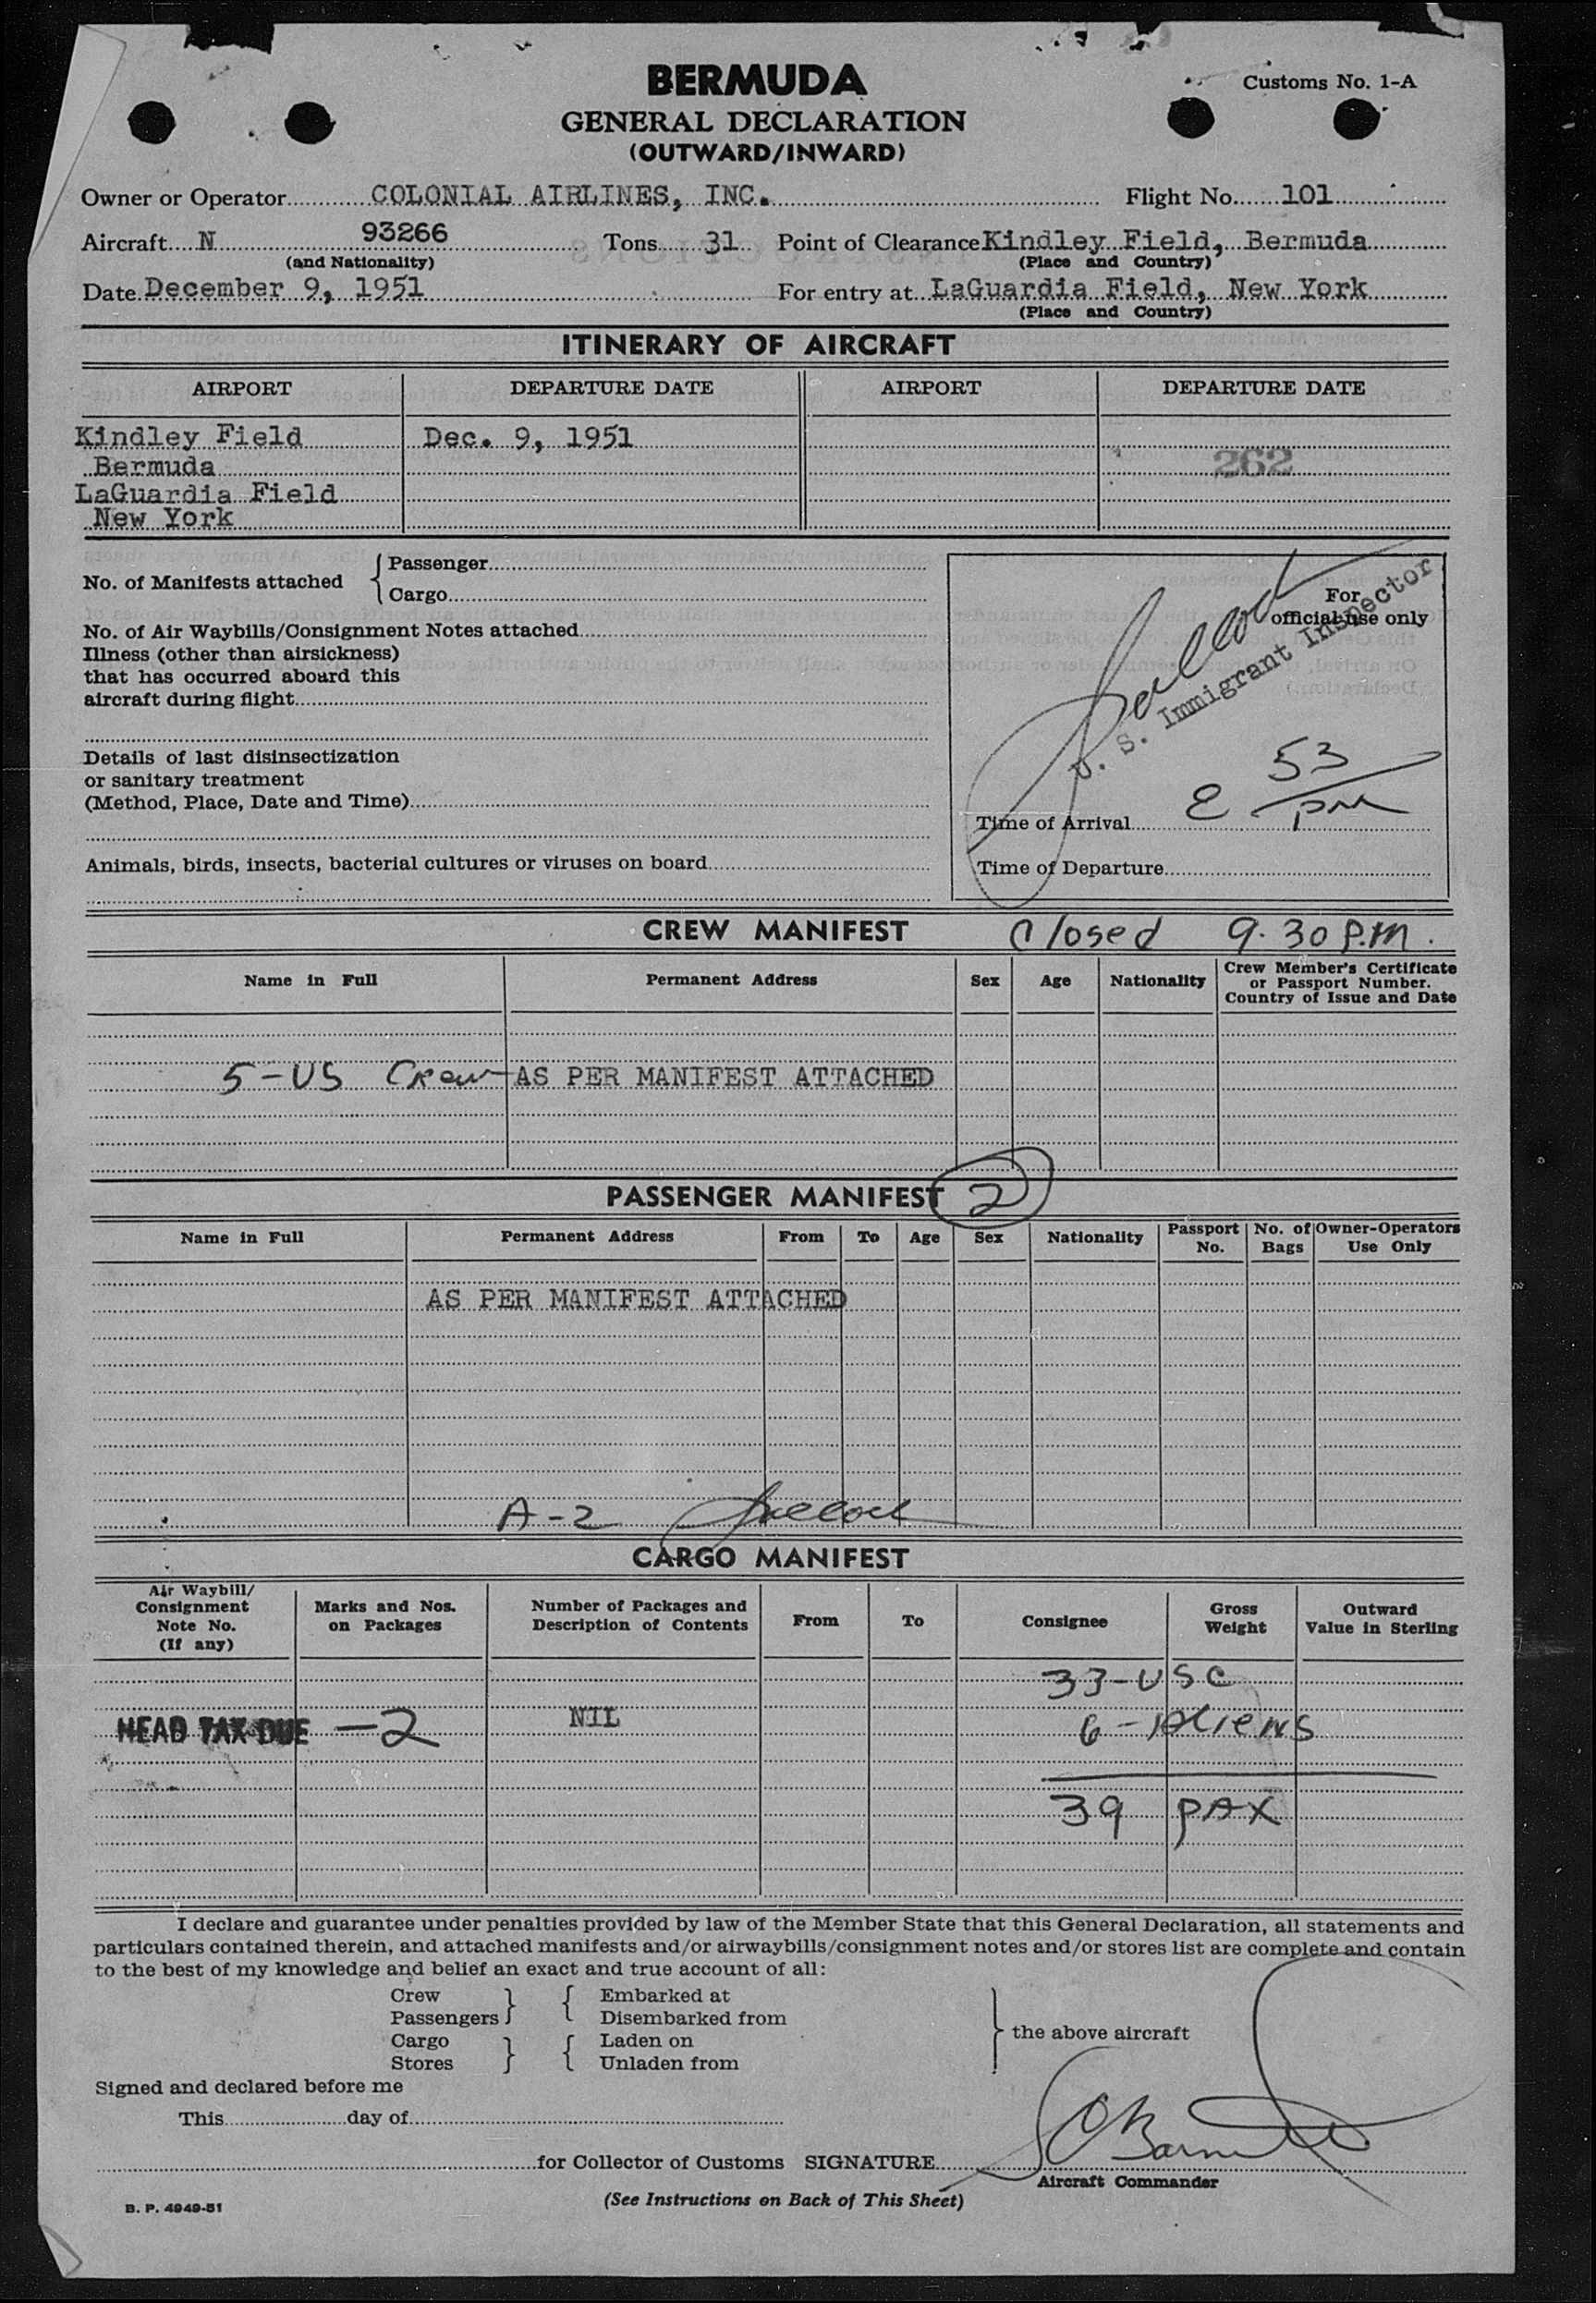 BERMUDA
Customs No. 1-A
GENERAL DECLARATION
(OUTWARD/INWARD)
Owner or Operator COLONIAL AIRLINES, INC. Flight No. 101
Aircraft N 93266 Tons 31 Point of Clearance Kindley Field, Bermuda
(and Nationality) (Place and Country)
Date December 9, 1951 For entry at LaGuardia Field, New York
(Place and Country)
ITINERARY OF AIRCRAFT
AIRPORT DEPARTURE DATE AIRPORT DEPARTURE DATE
Kindley Field Dec. 9, 1951
Bermuda 262
LaGuardia Field
New York
No. of Manifests attached { Passenger
Cargo
For
official use only
U. S. Immigrant Inspector
No. of Air Waybills/Consignment Notes attached
Illness (other than airsickness)
that has occurred aboard this
aircraft during flight
Details of last disinsectization
or sanitary treatment
(Method, Place, Date and Time)
Time of Arrival 8 53 pm
Animals, birds, insects, bacterial cultures or viruses on board
Time of Departure
CREW MANIFEST Closed 9.30 P.M.
Name in Full Permanent Address Sex Age Nationality Crew Member's Certificate
or Passport Number.
Country of Issue and Date
5-US Crew AS PER MANIFEST ATTACHED
PASSENGER MANIFEST 2
Name in Full Permanent Address From To Age Sex Nationality Passport No. No. of Bags Owner-Operators Use Only
AS PER MANIFEST ATTACHED
A-2
CARGO MANIFEST
Air Waybill/
Consignment
Note No.
(If any)
Marks and Nos.
on Packages
Number of Packages and
Description of Contents
From To Consignee
Gross
Weight
Outward
Value in Sterling
33-USC
HEAD TAX DUE -2 NIL 6-Aliens
39 PAX
I declare and guarantee under penalties provided by law of the Member State that this General Declaration, all statements and
particulars contained therein, and attached manifests and/or airwaybills/consignment notes and/or stores list are complete and contain
to the best of my knowledge and belief an exact and true account of all:
Crew } { Embarked at
Passengers Disembarked from
Cargo } { Laden on
Stores Unladen from
} the above aircraft
Signed and declared before me
This day of
for Collector of Customs SIGNATURE
Aircraft Commander
B. P. 4949-51
(See Instructions on Back of This Sheet)